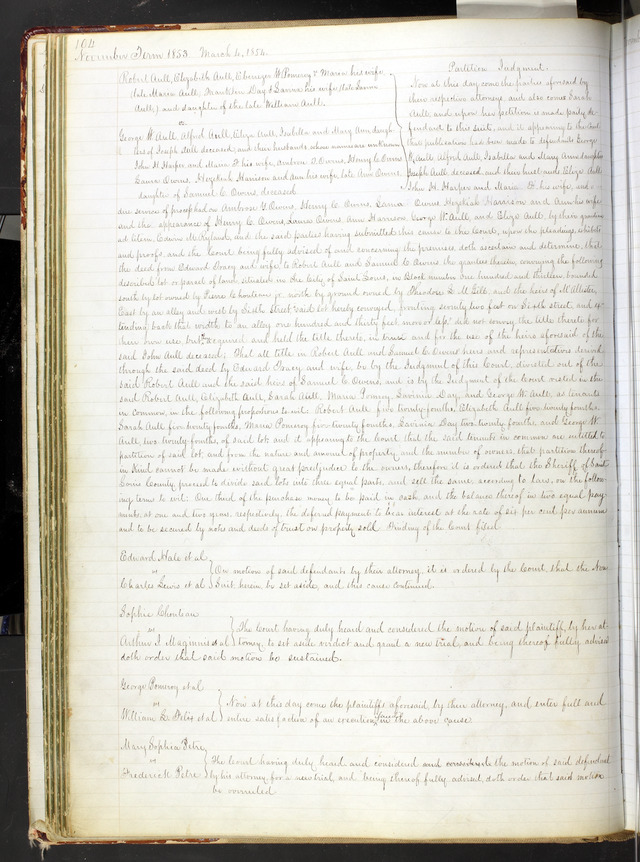 104
November Term 1853. March 4, 1854.
Partition Judgment.
Robert Aull, Elizabeth Aull, Ebenezer W Pomeroy & Maria his wife
(late Maria Aull, Franklin Day & Lavinia his wife (late Lavinia
Aull,) and daughter of the late William Aull.
vs
George W. Aull, Alfred Aull, Eliza Aull, Isabella and Mary Ann daugh-
ters of Joseph Aull deceased, and their husbands whose names are unknown
John H Harper and Maria F. his wife, Ambrose G. Owens, Henry C. Owens
Laura Owens, Hezekiah Harrison and Ann his wife, late Ann Owens,
daughter of Samuel C. Owens, deceased
Now at this day come the parties aforesaid by
their respective attorneys, and also comes Sarah
Aull, and upon her petition is made party de-
fendant to this suit, and it appearing to the Court
that publication has been made to defendants George
W. Aull, Alfred Aull, Isabella and Mary Ann daughters
Joseph Aull, deceased, and their husbands and Eliza Aull
John H. Harper and Maria F. his wife, and
due service of process had on Ambrose G Owens, Henry C. Owens, Laura Owens, Hezekiah Harrison and Ann his wife
and the appearance of Henry C. Owens, Laura Owens, Ann Harrison, George W. Aull, and Eliza Aull, by their guardian
ad litem, Edwin M. Ryland, and the said parties having submitted this cause to the Court, upon the pleadings, exhibits
and proofs, and the Court being fully advised of and concerning the premises, doth ascertain and determine, that
the deed from Edward Tracy and wife, to Robert Aull and Samuel C. Owens the grantees therein, conveying the following
described lot or parcel of land, situated in the City of Saint Louis, in Block number One hundred and thirteen, bounded
South by lot owned by Pierre Chouteau jr. north by ground owned by Theodore L. McGill, and the heirs of McAllister,
East by an alley and west by Sixth Street said lot hereby conveyed, fronting seventy two feet on Sixth Street, and ex-
tending back that width to an alley one hundred and thirty feet more or less, did not convey the title thereto for
their own use, but acquired and held the title thereto, in trust and for the use of the heirs aforesaid of the
said John Aull deceased; That all title in Robert Aull and Samuel C. Owens heirs and representatives derived
through the said deed by Edward Tracy and wife, be by the Judgment of this Court, divested out of the
said Robert Aull and the said heirs of Samuel C. Owens, and is by the Judgment of the Court vested in the
said Robert Aull, Elizabeth Aull, Sarah Aull, Maria Pomeroy, Lavinia Day, and George W. Aull, as tenants
in common, in the following proportions to wit. Robert Aull five twenty-fourths, Elizabeth Aull five twenty fourths,
Sarah Aull five twenty fourths, Maria Pomeroy five twenty fourths, Lavinia Day two twenty fourths, and George W.
Aull, two twenty-fourths, of said lot and it appearing to the Court that the said tenants in common are entitled to
partition of said lot, and from the nature and amount of property, and the number of owners, that partition thereof
in Kind cannot be made without great prejudice to the owners, therefore it is ordered that the Sheriff of Saint
Louis County, proceed to divide said lots into three equal parts, and sell the same, according to law, on the follow-
ing terms to wit. One third of the purchase money to be paid in cash, and the balance thereof in two equal pay-
ments, at one and two years, respectively, the deferred payments to bear interest at the rate of six per cent per annum
and to be secured by note and deeds of trust on property sold. Finding of the Court filed.
Edward Hale et al
vs
Charles Lewis et al
On motion of said defendants by their attorney, it is ordered by the Court, that the Non
Suit herein, be set aside, and this cause continued.
Sophie Chouteau
vs
Arthur J. Maginnis et al
The Court having duly heard and considered the motion of said plaintiff, by her at-
torney, to set aside verdict and grant a new trial, and being thereof fully advised
doth order that said motion be sustained.
George Pomeroy et al
vs
William L. Petis et al
Now at this day come the plaintiffs aforesaid, by their attorney, and enter full and
entire satisfaction of an execution in the above cause.
Mary Sophia Petre
vs
Frederick Petre
The Court having duly heard and considered and considered the motion of said defendant
by his attorney for a new trial, and being thereof fully advised, doth order that said motion
be overruled